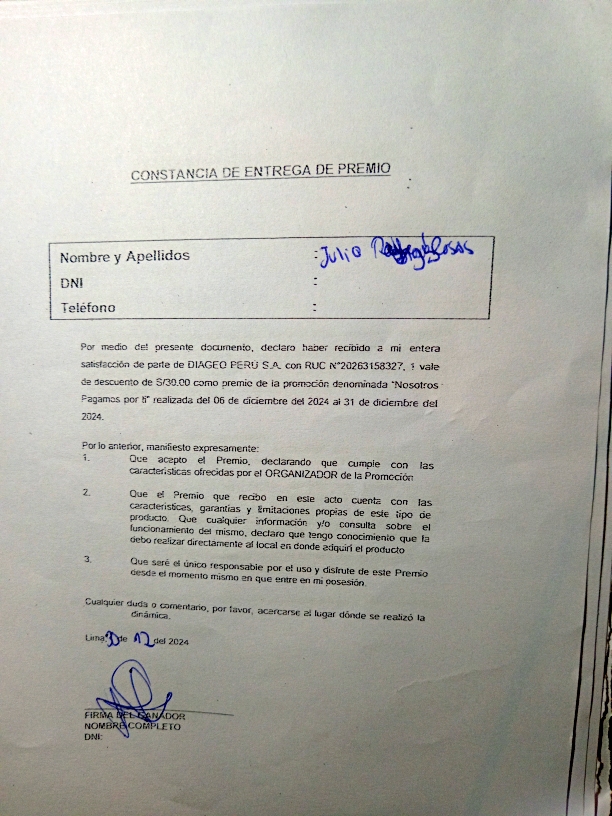 CONSTANCIA DE ENTREGA DE PREMIO
Nombre y Apellidos : Julio Rosas
DNI :
Teléfono :
Por medio del presente documento, declaro haber recibido a mi entera
satisfacción de parte de DIAGEO PERÚ S.A. con RUC N°20263158327, 1 vale
de descuento de S/30.00 como premio de la promoción denominada "Nosotros
Pagamos por ti" realizada del 06 de diciembre del 2024 al 31 de diciembre del
2024.
Por lo anterior, manifiesto expresamente:
1. Que acepto el Premio, declarando que cumple con las
características ofrecidas por el ORGANIZADOR de la Promoción
2. Que el Premio que recibo en este acto cuenta con las
características, garantías y limitaciones propias de este tipo de
producto. Que cualquier información y/o consulta sobre el
funcionamiento del mismo, declaro que tengo conocimiento que la
debo realizar directamente al local en donde adquirí el producto
3. Que seré el único responsable por el uso y disfrute de este Premio
desde el momento mismo en que entre en mi posesión.
Cualquier duda o comentario, por favor, acercarse al lugar dónde se realizó la
dinámica.
Lima, de 12 del 2024
FIRMA DEL GANADOR
NOMBRE COMPLETO
DNI: